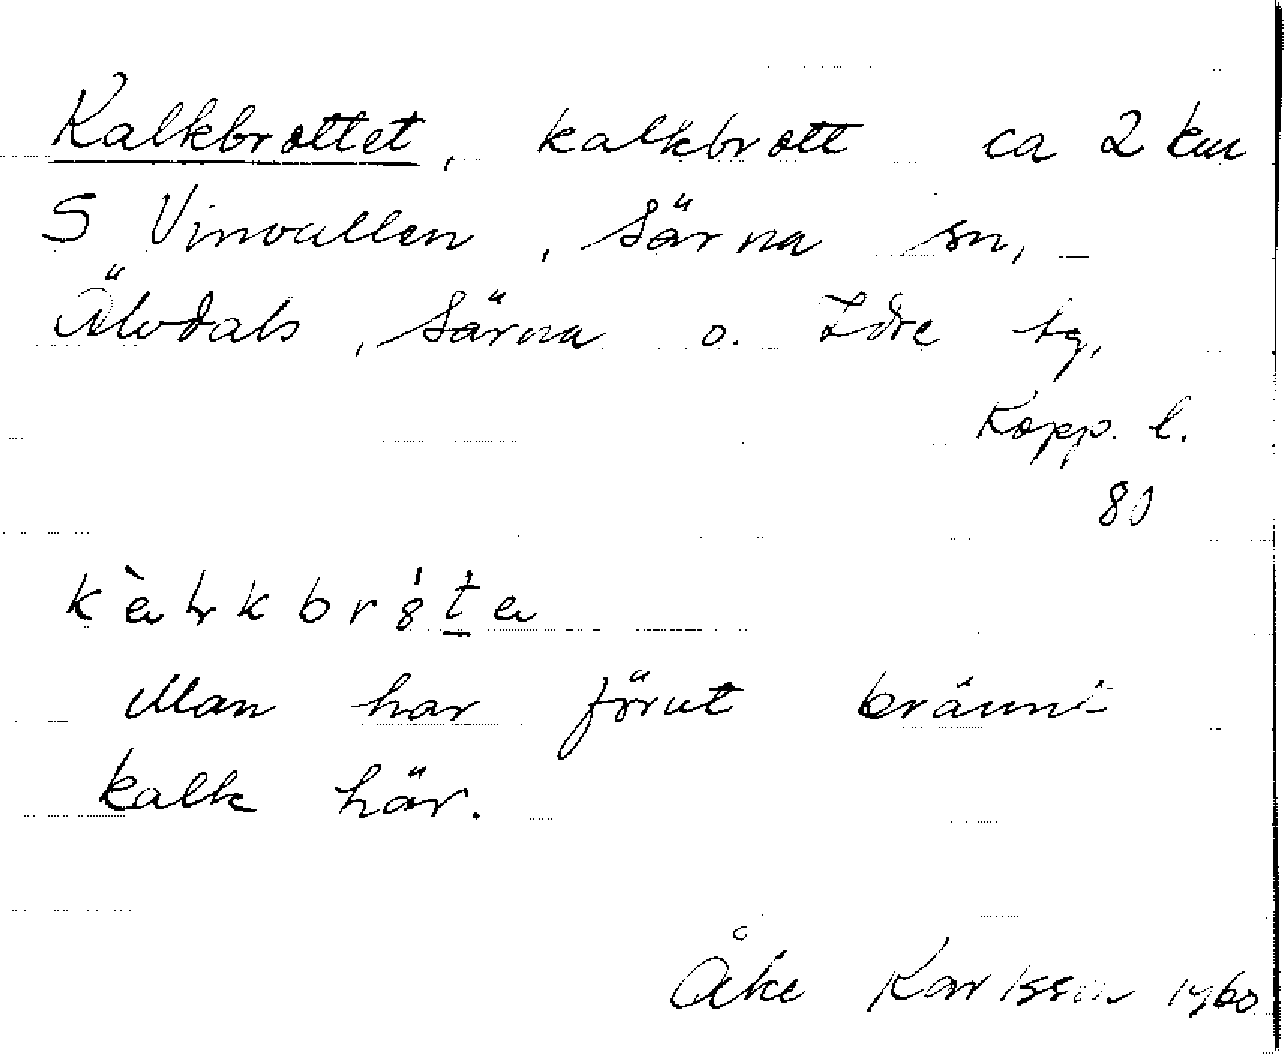 Kalkbrottet, kalkbrott ca 2 km
S Vinvallen, Särna sn,
Älvdals, Särna o. Idre tg,
Kopp. l.
Man har förut bränt
kalk här.
Åke Karlsson 1960